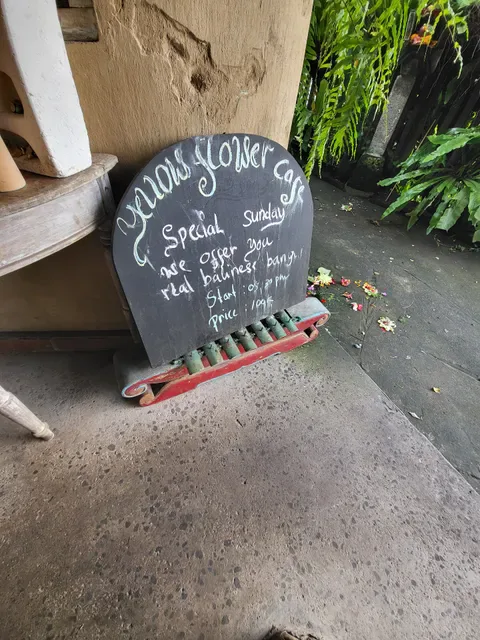 Yellow flower Cafe
Special Sunday
we offer you
real balinese
Start : pm
Price :